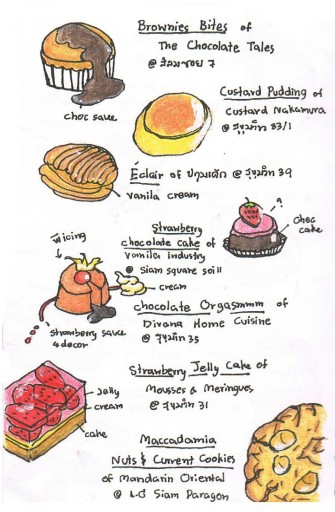 Brownies Bites of
The Chocolate Tales
choc sauce
Custard Pudding of
Custard Nakamura
@ สุขุมวิท 33/1
Éclair of ปาณเด๊ก @ สุขุมวิท 39
vanila cream
Strawberry
chocolate cake of
Vanilla Industry
@ Siam Square soi 11
choc
cake
?
icing
cream
strawberry sauce
4 decor
chocolate Orgasmmm of
Divana Home Cuisine
@ สุขุมวิท 35
Strawberry Jelly Cake of
Mousses & Meringues
@ สุขุมวิท 31
Jelly
cream
cake
Maccadamia
Nuts & Current Cookies
of Mandarin Oriental
@ Siam Paragon